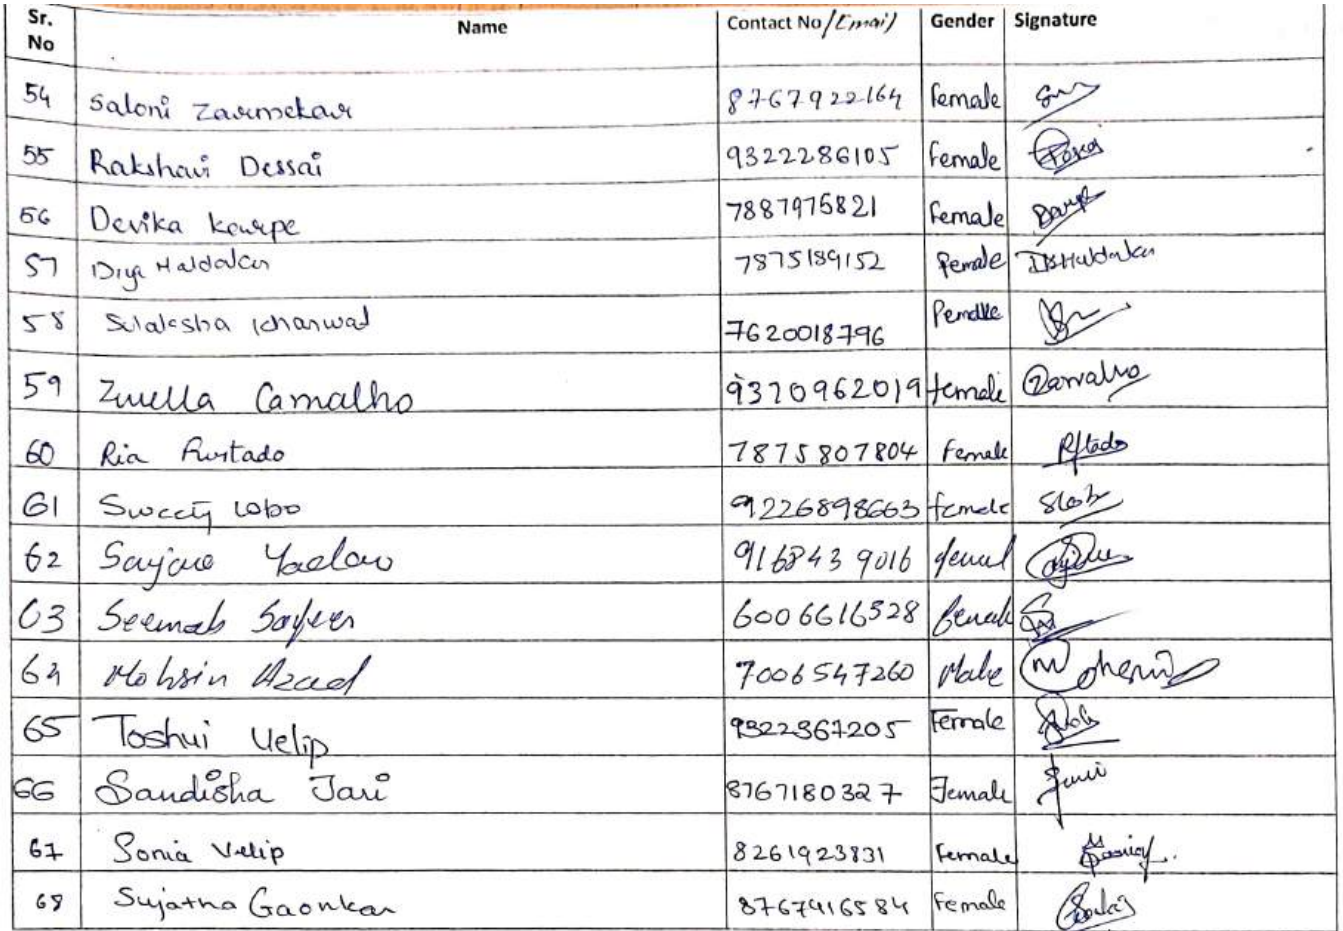 Sr. No Name Contact No/Email) Gender Signature
54 Saloni Zarmekar 8767922164 female
55 Rakshavi Dessai 9322286105 female
56 Devika kerpe 7887975821 female
57 Diya Haldankar 7875189152 female
58 Sulaksha kharwat 7620018796 Female
59 Zuella Carvalho 9370962019 female
60 Ria Furtado 7875807804 Female
61 Sweety lobo 9226898663 female
62 Yadav 9168439016
63 Seemab 6006616528 female
64 Mohsin Azad 7006547260 Male
65 Toshvi Velip 9322367205 Female
66 Sandisha Jari 8767180327 Female
67 Sonia Velip 8261923831 Female
68 Sujatha Gaonkar 8767416584 Female